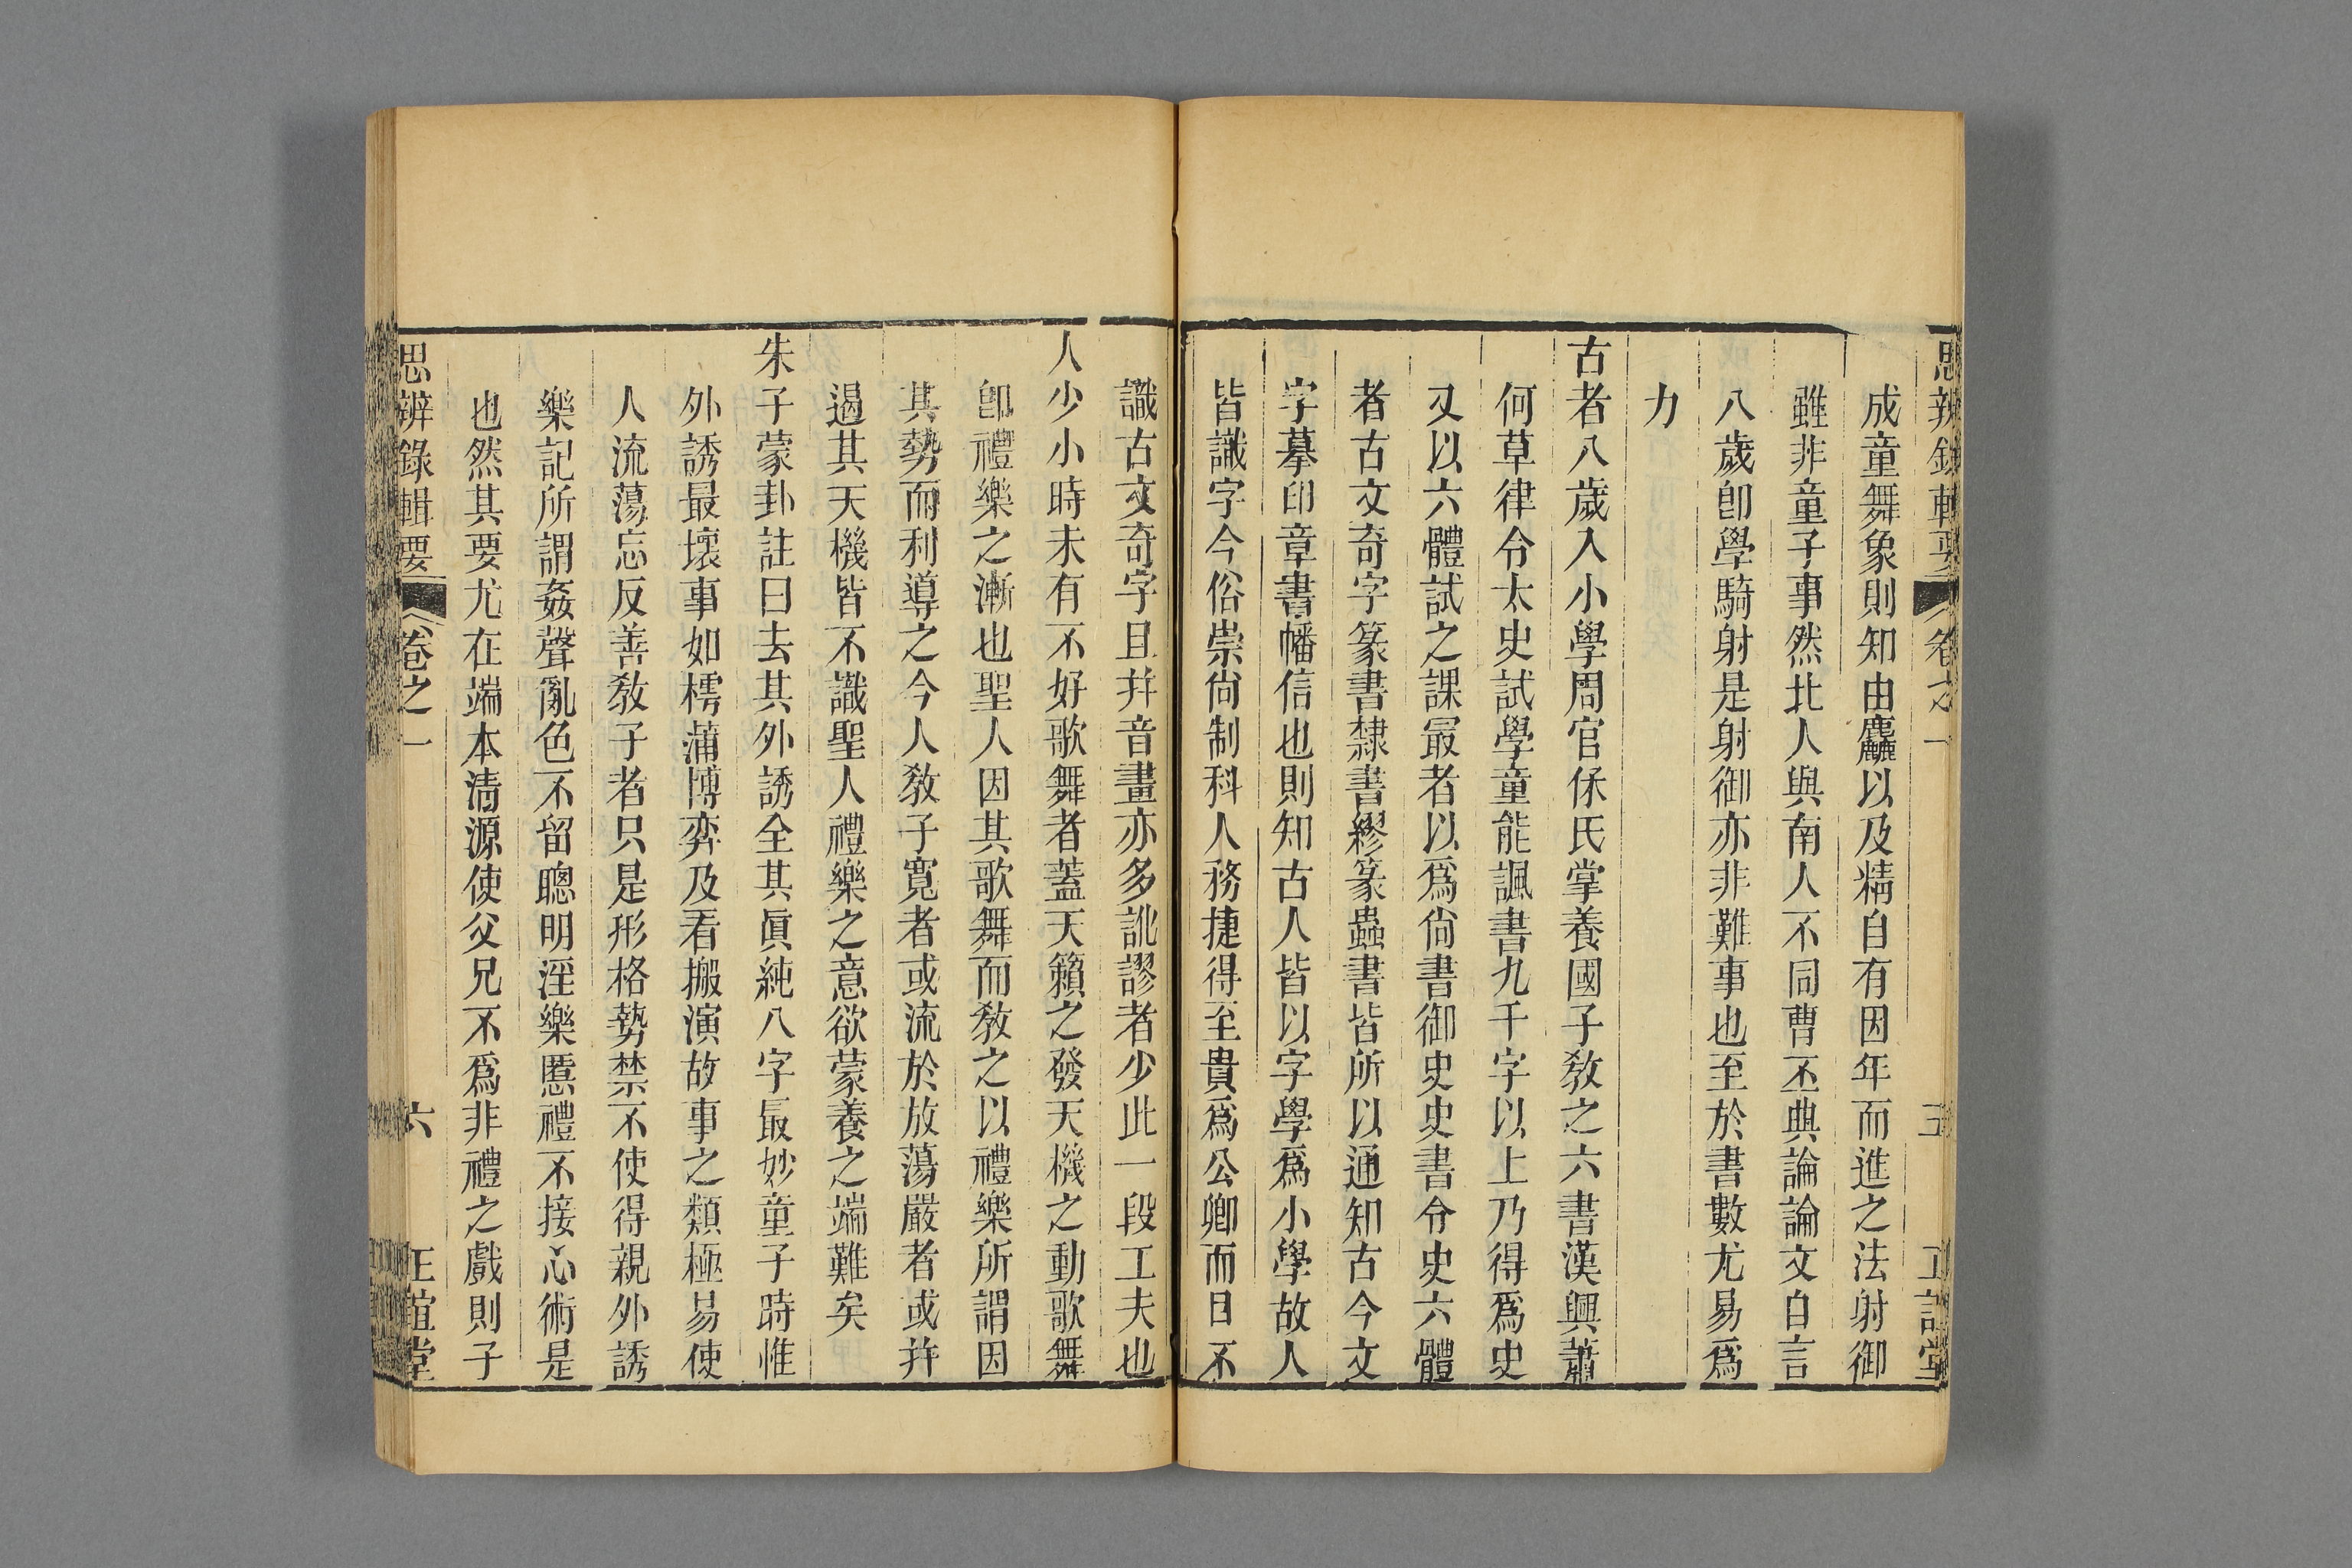 思辨錄輯要 卷之一 五 正誼堂
成童舞象則知由麤以及精自有因年而進之法射御
雖非童子事然北人與南人不同曹丕典論論文自言
八歲卽學騎射是射御亦非難事也至於書數尤易爲
力
古者八歲入小學周官保氏掌養國子敎之六書漢興蕭
何草律令太史試學童能諷書九千字以上乃得爲史
又以六體試之課最者以爲尙書御史史書令史六體
者古文奇字篆書隸書繆篆蟲書皆所以通知古今文
字摹印章書幡信也則知古人皆以字學爲小學故人
皆識字今俗崇尙制科人務捷得至貴爲公卿而目不
識古文奇字且幷音畫亦多訛謬者少此一段工夫也
人少小時未有不好歌舞者蓋天籟之發天機之動歌舞
卽禮樂之漸也聖人因其歌舞而敎之以禮樂所謂因
其勢而利導之今人敎子寬者或流於放蕩嚴者或幷
遏其天機皆不識聖人禮樂之意欲蒙養之端難矣
朱子蒙卦註曰去其外誘全其眞純八字最妙童子時惟
外誘最壞事如樗蒲博弈及看搬演故事之類極易使
人流蕩忘反善敎子者只是形格勢禁不使得親外誘
樂記所謂姦聲亂色不留聰明淫樂慝禮不接心術是
也然其要尤在端本淸源使父兄不爲非禮之戲則子
思辨錄輯要 卷之一 六 正誼堂